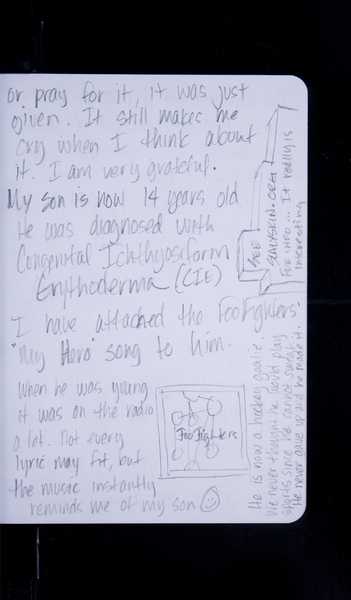 or pray for it, it was just
given. It still makes me
cry when I think about
it. I am very grateful.
My son is now 14 years old
He was diagnosed with
Congenital Ichthyosiform
Erythoderma (CIE)
I have attached the Foo Fighters
"My Hero" song to him.
When he was young
it was on the radio
a lot. Not every
lyric may fit, but
the music instantly
reminds me of my son
Foo Fighters
SEE
SCALYSKIN.ORG
FOR INFO... It really is
interesting
He is now a hockey goalie.
We never thought he would play
sports since he cannot sweat.
He never gave up and he made it.